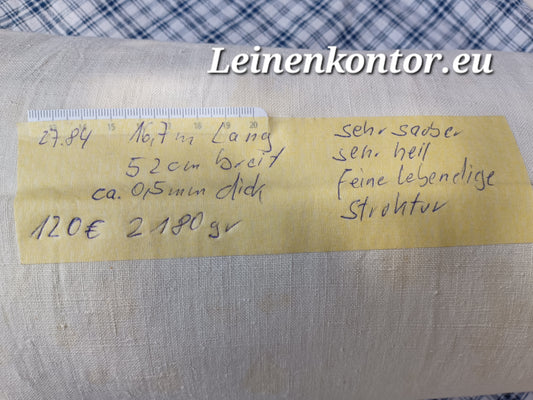 Leinenkontor.eu
15 17 18 19 20
27.84 16,7m Lang
52cm breit
ca. 0,5mm dick
120€ 2180gr
sehr sauber
sehr heil
feine lebendige
Struktur